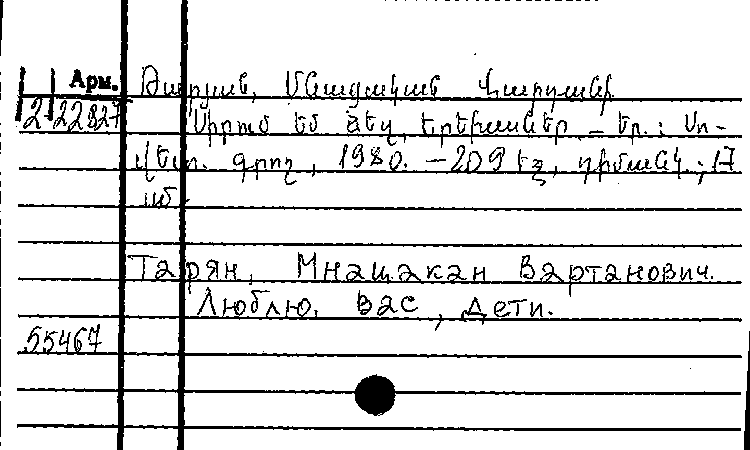 Арм. Թարյան, Մնացական Վարդանի
2 22827 Սիրում եմ ձեզ, երեխաներ. – Եր.: Սո-
վետ. գրող, 1980. – 209 էջ, դիմանկ.; 17
սմ.
Тарян, Мнацакан Вартанович.
Люблю, вас, дети.
55467